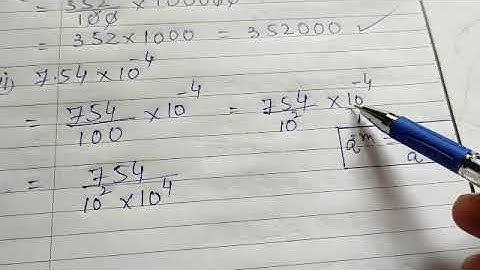 = 352/100 × 100000
= 352×1000 = 352000 ✓
ii) 7.54 × 10⁻⁴
= 754/100 × 10⁻⁴ = 754/10² × 10⁻⁴
a^m =
a
= 754/10² × 10⁴